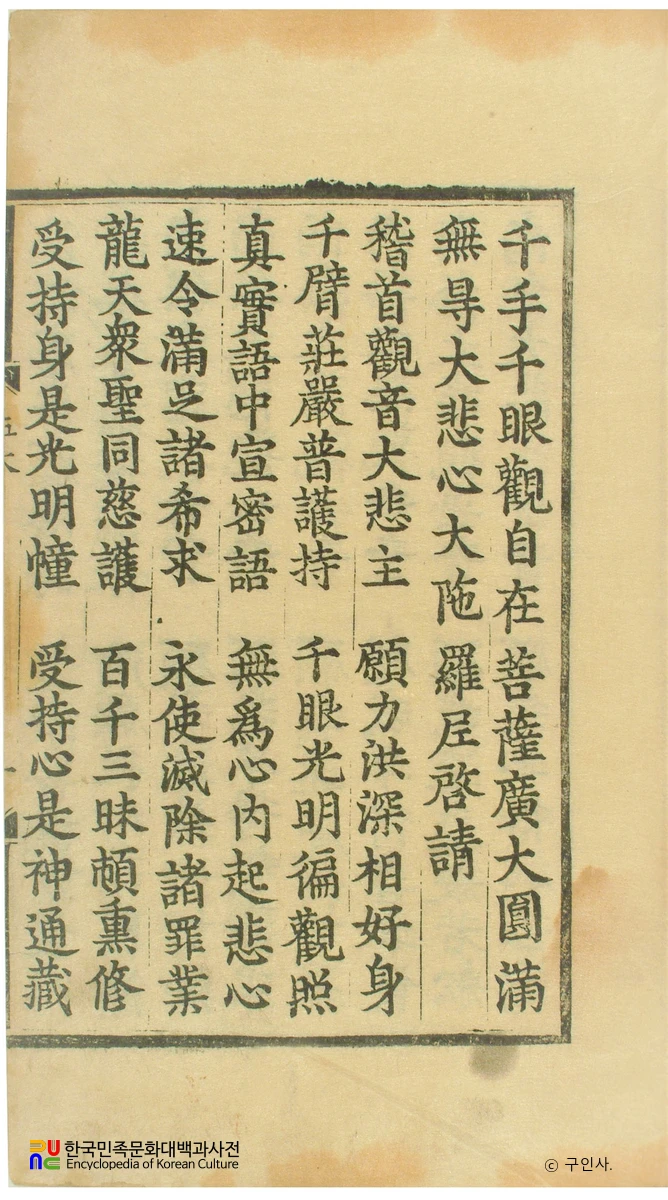 千手千眼觀自在菩薩廣大圓滿
無㝵大悲心大陁羅尼啓請
稽首觀音大悲主 願力洪深相好身
千臂莊嚴普護持 千眼光明徧觀照
真實語中宣密語 無爲心內起悲心
速令滿足諸希求 永使滅除諸罪業
龍天衆聖同慈護 百千三昧頓熏修
受持身是光明幢 受持心是神通藏
五大
一
한국민족문화대백과사전
Encyclopedia of Korean Culture
ⓒ 구인사.